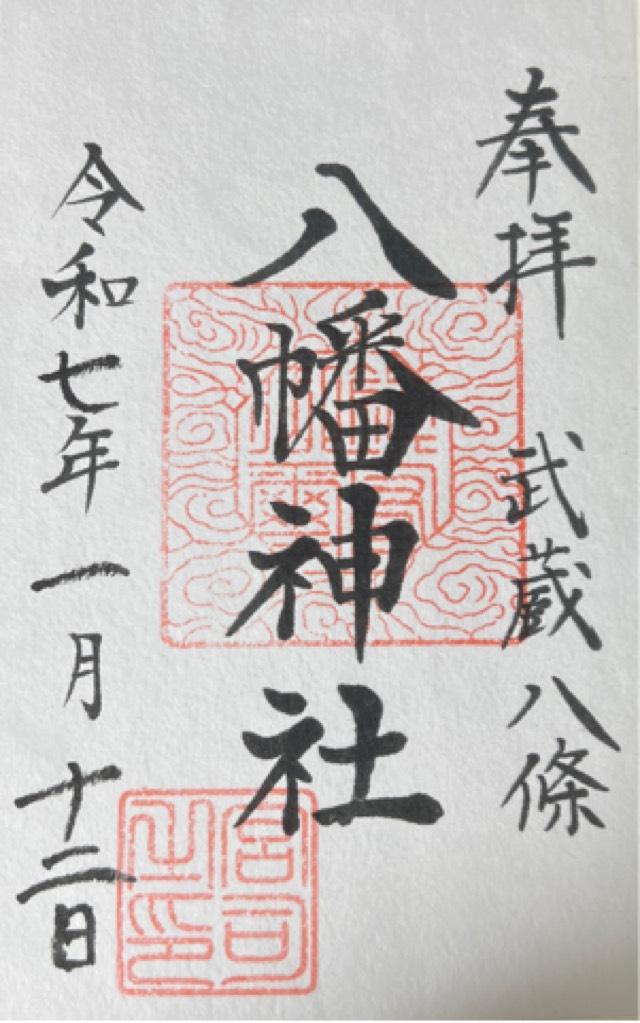 奉拝 武蔵八條
八幡神社
令和七年一月十二日
宮司之印